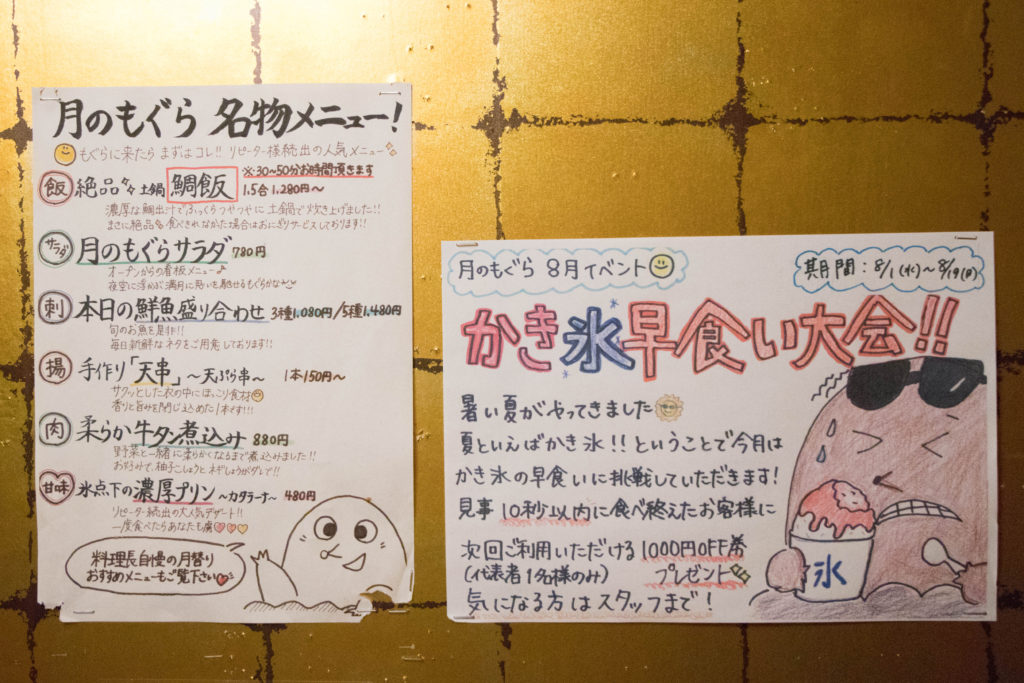 月のもぐら 名物メニュー!
もぐらに来たら まずはコレ!! リピーター様続出の人気メニュー
※30~50分お時間頂きます
飯 絶品 土鍋 鯛飯 1.5合 1,280円~
濃厚な鯛出汁でふっくらつやつやに 土鍋で炊き上げました!!
まさに絶品 食べきれなかった場合はおにぎりサービスしております!!
サラダ 月のもぐらサラダ 780円
オープンからの看板メニュー♪
夜空に浮かぶ満月に想いを馳せるもぐらかな
刺 本日の鮮魚盛り合わせ 3種1,080円/5種1,480円
旬のお魚を是非!!
毎日新鮮なネタをご用意しております!!
揚 手作り「天串」~天ぷら串~ 1本150円~
サクッとした衣の中にほっこり食材
香りと旨みを閉じ込めた1本です!!!
肉 柔らか牛タン煮込み 880円
野菜と一緒に柔らかくなるまで煮込みました!!
お好みで、柚子こしょうとネギしょうがダレで!!
甘味 氷点下の濃厚プリン ~カタラーナ~ 480円
リピーター続出の大人気デザート!!
一度食べたらあなたも虜
料理長自慢の月替り
おすすめメニューもご覧下さい
月のもぐら 8月イベント
期間:8/1(水)~8/19(日)
かき氷早食い大会!!
暑い夏がやってきました
夏といえばかき氷!!ということで今月は
かき氷の早食いに挑戦していただきます!
見事 10秒以内に食べ終えたお客様に
次回ご利用いただける 1000円OFF券
(代表者1名様のみ) プレゼント
気になる方はスタッフまで!
氷